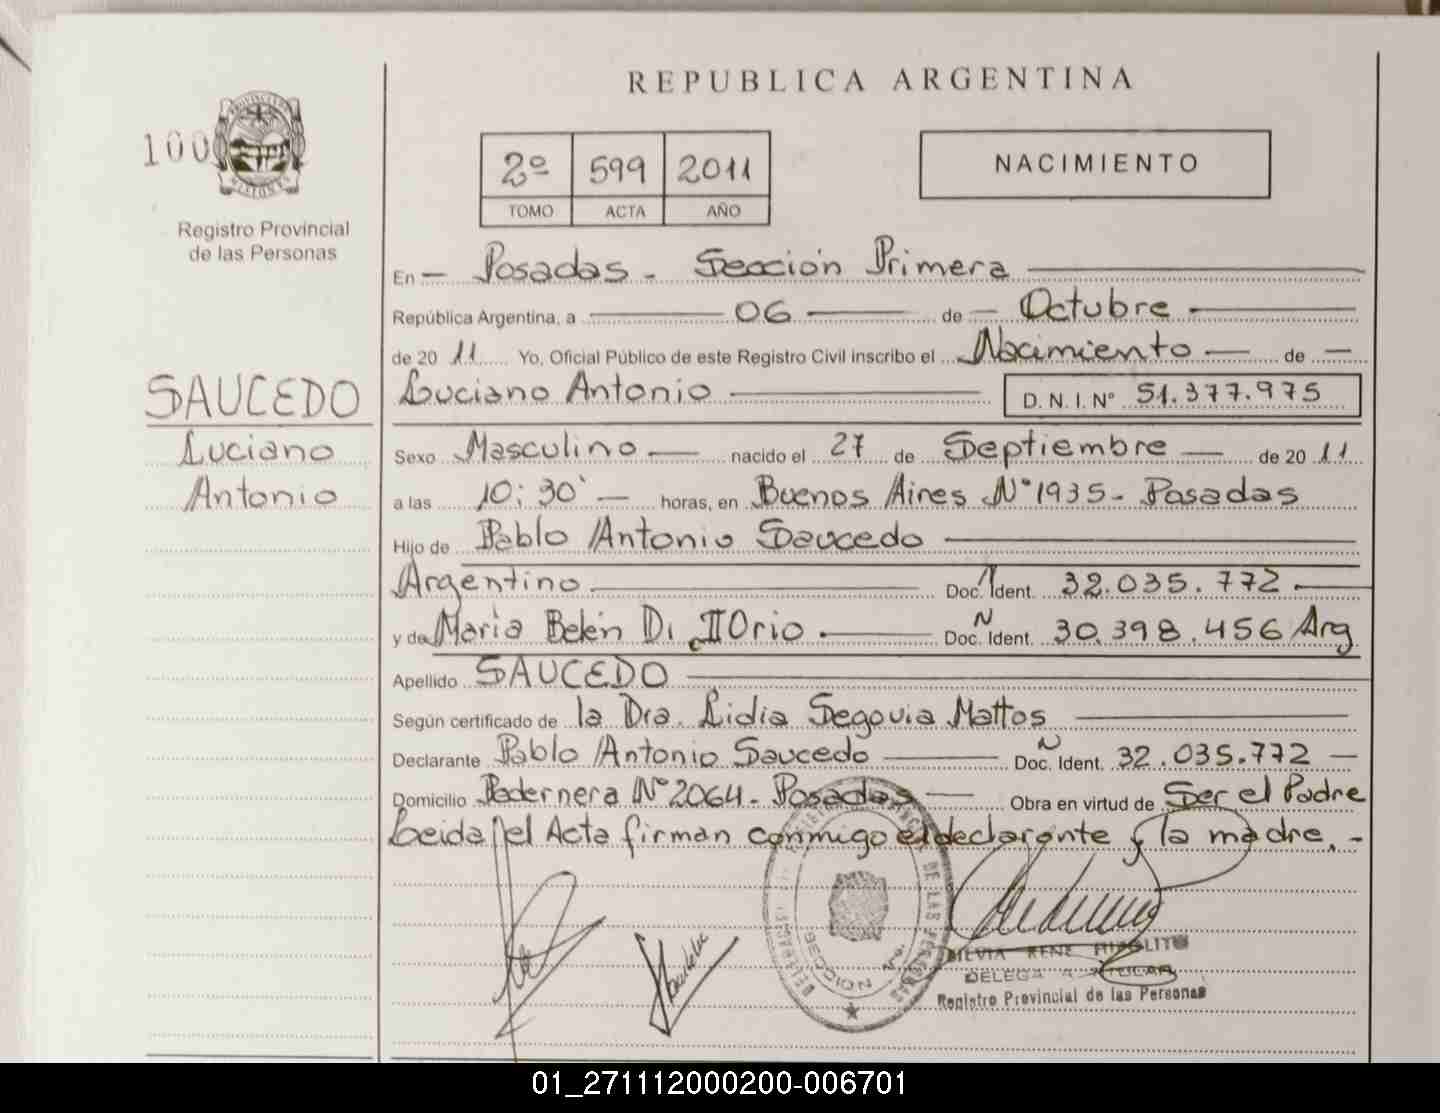 REPUBLICA ARGENTINA
100
PROVINCIA DE MISIONES
Registro Provincial
de las Personas
2º 599 2011
TOMO ACTA AÑO
NACIMIENTO
En Posadas - Sección Primera
República Argentina, a 06 de Octubre
de 20 11 Yo, Oficial Público de este Registro Civil inscribo el Nacimiento de
SAUCEDO
Luciano
Antonio
Luciano Antonio D. N. I. N° 51.377.975
Sexo Masculino nacido el 27 de Septiembre de 20 11
a las 10:30' horas, en Buenos Aires N° 1935 - Posadas
Hijo de Pablo Antonio Saucedo
Argentino Doc. Ident. 32.035.772
y de Maria Belén Di Orio Doc. Ident. 30.398.456 Arg
Apellido SAUCEDO
Según certificado de la Dra. Lidia Segovia Mattos
Declarante Pablo Antonio Saucedo Doc. Ident. 32.035.772
Domicilio Pedernera N° 2064 - Posadas Obra en virtud de Ser el Padre
Leida el Acta firman conmigo el declarante y la madre. -
SILVIA RENE HIPOLITO
DELEGADA TITULAR
Registro Provincial de las Personas
01_271112000200-006701